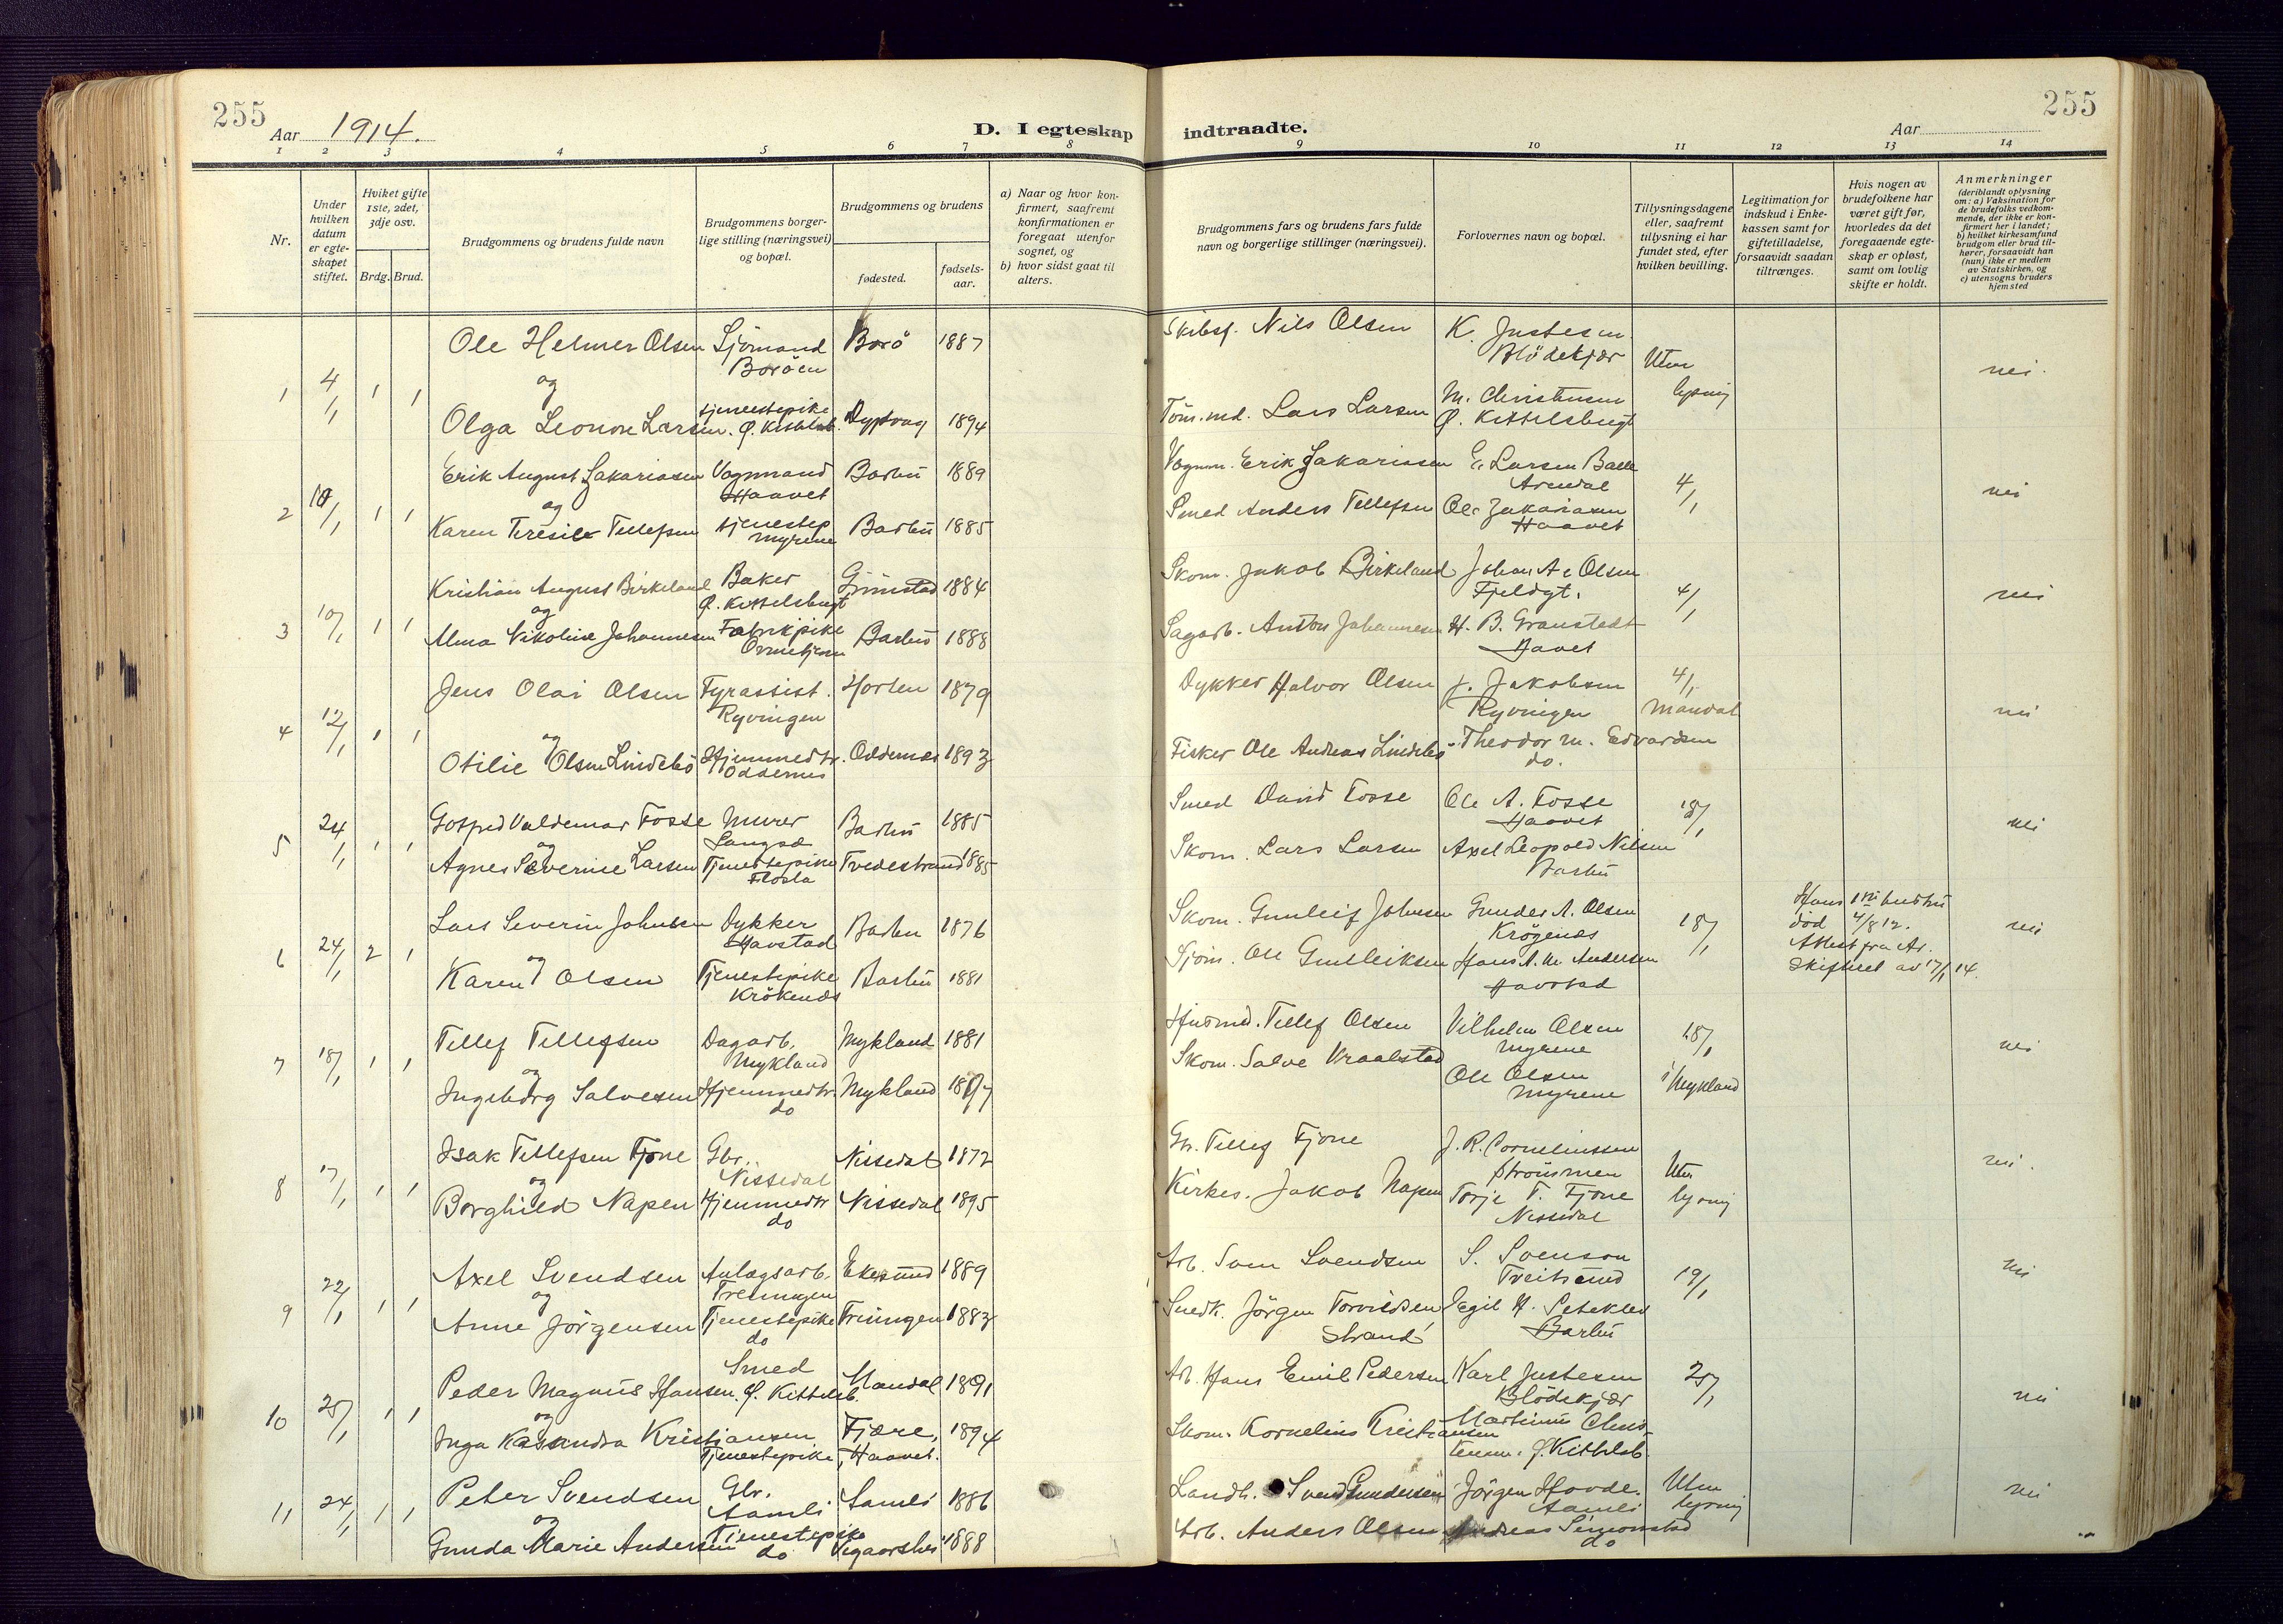 255
Aar 1914.
D. I egteskap indtraadte.
Aar
255
1 2 3 4 5 6 7 8 9 10 11 12 13 14
Nr.
Under hvilken datum er egteskapet stiftet.
Hviket gifte 1ste, 2det, 3dje osv.
Brdg. Brud.
Brudgommens og brudens fulde navn
Brudgommens borgerlige stilling (næringsvei) og bopæl.
Brudgommens og brudens
fødested.
fødselsaar.
a) Naar og hvor konfirmert, saafremt konfirmationen er foregaat utenfor sognet, og
b) hvor sidst gaat til alters.
Brudgommens fars og brudens fars fulde navn og borgerlige stillinger (næringsvei).
Forlovernes navn og bopæl.
Tillysningsdagene eller, saafremt tillysning ei har fundet sted, efter hvilken bevilling.
Legitimation for indskud i Enkekassen samt for giftetilladelse, forsaavidt saadan tiltrænges.
Hvis nogen av brudefolkene har været gift før, hvorledes da det foregaaende egteskap er opløst, samt om lovlig skifte er holdt.
Anmerkninger
(deriblandt oplysning om: a) Vaksination for de brudefolks vedkommende, der ikke er konfirmert her i landet;
b) hvilket kirkesamfund brudgom eller brud tilhører, forsaavidt han (hun) ikke er medlem av Statskirken, og
c) utensogns bruders hjemsted
1 4/1 1 1
Ole Helmer Olsen Sjömand Borö 1887 Skibsf. Nils Olsen K. Justesen
Boröen Blödekjær Uten
og nei.
Olga Leonore Larsen. tjenestepike Ø. Kittelsb. Dypvag 1894 Töm.md. Lars Larsen M. Christensen lysning
Ø. Kittelsbugt
2 10/1 1 1
Erik August Zakariasen Vognmand Barbu 1889 Vognm. Erik Zakariasen E. Larsen
Haavet Arendal 4/1 nei
og
Karen Teresie Tellefsen tjenestep Barbu 1885 Smed Anders Tellefsen Ole Zakariasen
Myrene Haavet
3 10/1 1 1
Kristian August Birkeland Baker Grimstad 1884 Skom. Jakob Birkeland Johan A. Olsen
Ø. Kittelsbugt Fjeldgt. 4/1 nei
og
Alma Nikoline Johannesen Fabrikpike Barbu 1888 Sagarb. Anton Johannesen H. B. Granstedt
Havet
4 12/1 1 1
Jens Olai Olsen Fyrassist. Horten 1879 Dykker Halvor Olsen J. Jakobsen 4/1
Ryvingen Ryvingen Mandal nei
og
Otilie Olsen Lindebö Hjemmedtr. Oddernes 1893 Fisker Ole Andreas Lindebö Theodor M. Edvardsen
Oddernes do.
5 24/1 1 1
Gotfred Valdemar Fosse Murer Barbu 1885 Smed David Fosse Ole A. Fosse 18/1
Langsæ Haavet nei
og
Agnes Severine Larsen Tjenestepike Tvedestrand 1885 Skom. Lars Larsen Axel Leopold Nilsen
Flosta Barbu
6 24/1 2 1
Lars Severin Johnsen Dykker Barbu 1876 Skom. Gunleif Johnsen Gunder A. Olsen 18/1 Hans 1ste hustru
Havstad Krögenæs död 4/8 12. nei
og Attest fra Ar.
Karen Olsen Tjenestepike Barbu 1881 Sjöm. Ole Gunleiksen Hans A. M. Andersen skifteret av 17/1 14.
Krökenæs Havstad
7 18/1 1 1
Tellef Tellefsen Dagarb. Mykland 1881 Husmd. Tellef Olsen Vilhelm Olsen 18/1
Mykland Myrene nei
og
Ingeborg Salvesen Hjemmedtr. Mykland 1897 Skom. Salve Vraalstad Ole Olsen i Mykland
do Myrene
8 17/1 1 1
Isak Tellefsen Fjone Gbr. Nissedal 1872 Gbr. Tellef Fjone J. R. Corneliussen
Nissedal Strömmen Uten nei.
og
Borghild Napen Hjemmedtr Nissedal 1895 Kirkes. Jakob Napen Torje T. Fjone lysning
do Nissedal
9 22/1 1 1
Axel Svendsen Anlægsarb. Ekersund 1889 Arb. Sven Svendsen S. Svenson
Treungen 19/1 nei
og
Anne Jörgensen Tjenestepike Triungen 1883 Snedk. Jörgen Torvildsen Egil H.
do Strand Barbu
10 25/1 1 1
Peder Magnus Hansen. Smed Ø. Kittelsb. Mandal 1891 Arb. Hans Emil Pedersen Karl Justesen 25/1
Blödekjær nei
og
Inga Kasandra Kristiansen Fjære, 1894 Skom. Kornelius Kristiansen Martinius Christensen. Ø. Kittelsb.
Tjenestepike, Haavet.
11 24/1 1 1
Peter Svendsen Gbr. Samli 1886 Landh. Svend Gundersen Jörgen Hovde. Uten
Aamli Aamli lysning nei
og
Gunda Marie Andersen Tjenestepike Vegaarshei 1888 Arb. Anders Olsen Andreas Simonstad
do do